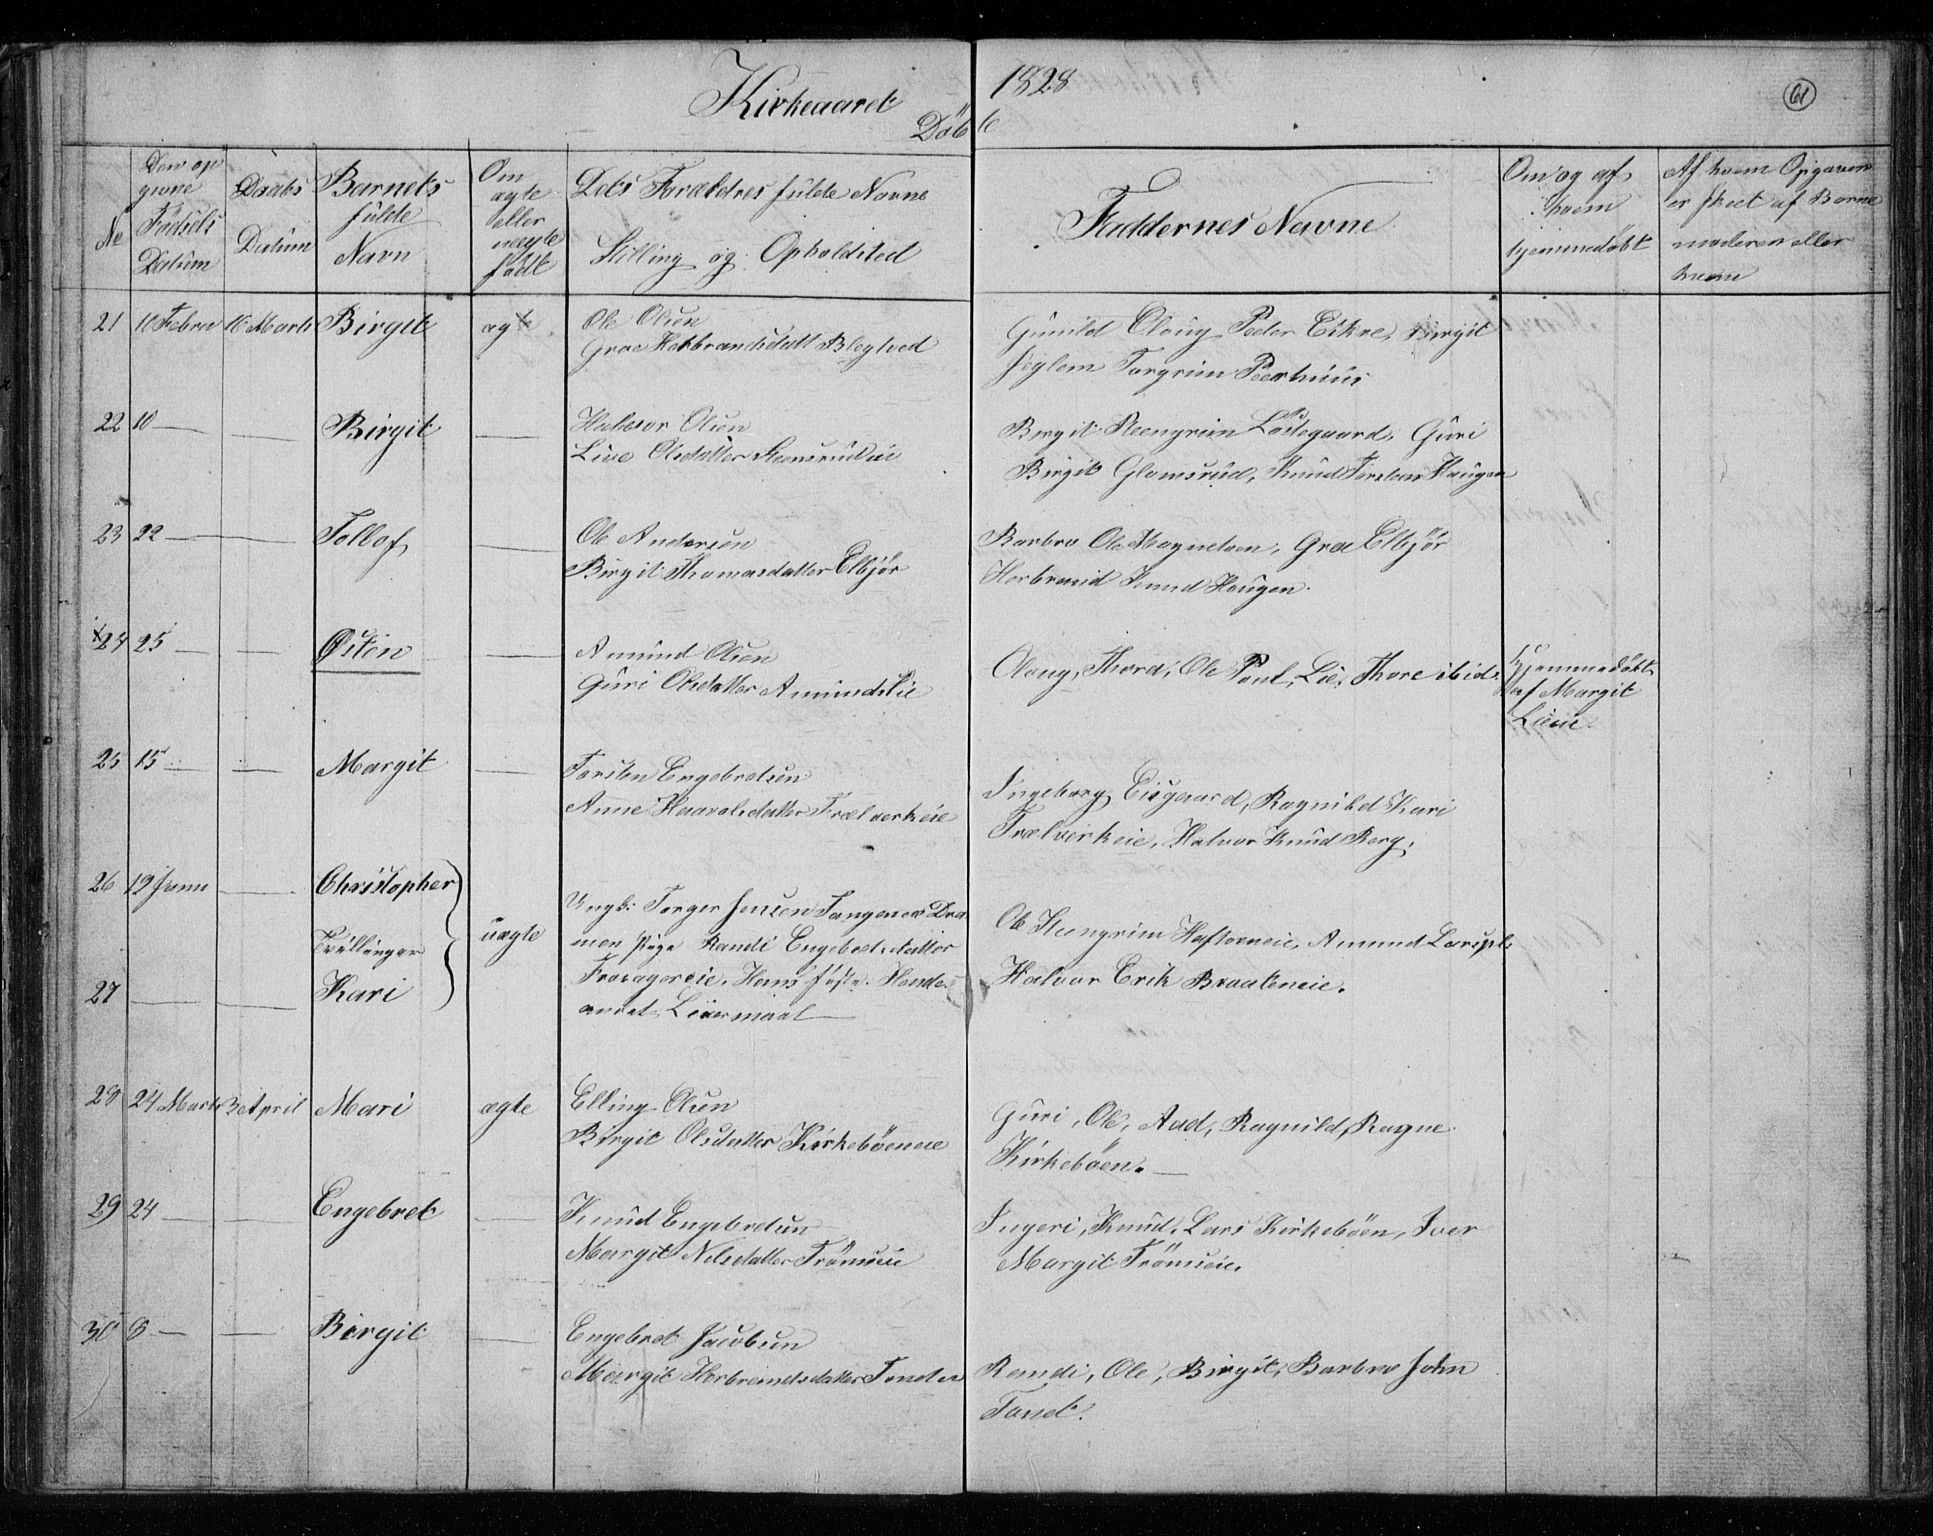 Kirkeaaret 1828
61
Döbte
No
Den op
givne
Födsels
Datum
Daabs
Datum
Barnets
fulde
Navn
Om
ægte
eller
uægte
födt
Dets Forældres fulde Navne
Stilling og Opholdsted
Faddernes Navne
Om og af
hvem
hjemmedöbt
Af hvem Opgaven
er skeet af Barne
moderen eller
hvem
21 10 Febru 16 Marts Birgit ægte Ole Olsen
Groe Helbrandsdatt
Gunild Olaug Peder Eikre, Birgit
Torgrim
22 10 — — Birgit — Halvor Olsen
Live Olsdatter
Birgit Steengrim Guri
Birgit Glomsrud, Knud Haugen
23 22 — — Tollof — Ole Andersen
Birgit Thomasdatter Elbjör
Barbro Ole Groe Elbjör
Herbrand Knud Haugen.
24 25 — — Østen — Amund Olsen
Guri Olsdatter
Olaug, Thora, Ole Poul, Lie, Thore ibid.
Hjemmedöbt
af Margit
25 15 — — Margit — Torsten Engebretsen
Anne Trælverkeie
Ingeborg Ragnild Kari
Trælverkeie, Halvor Knud Berg.
26 19 Janu — Christopher
uægte
Tvillinger
27 — — Kari
Ungk: Torger Jensen Tangen
men Pige Randi Engebretsdatter
Hans
andet Leiermaal —
Ole Steengrim Amund
Halvor Erik Braateneie.
28 24 Marts 3 April Mari ægte Elling Olsen
Birgit Olsdatter Kirkeböeneie
Guri, Ole, Aad, Ragnild, Ragne
Kirkeböen. —
29 24 — — Engebret — Knud Engebretsen
Margit Nilsdatter Trömseie
Ingeri, Knud, Lars Kirkeböen, Iver
Margit Trömseie.
30 8 — — Birgit — Engebret Jacobsen
Margit Herbrandsdatter
Randi, Ole, Birgit, Barbroe John